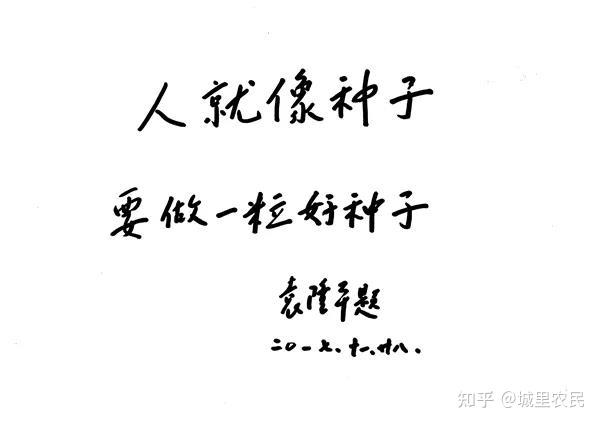 人就像种子
要做一粒好种子
袁隆平题
二〇一七.十一.廿八.
知乎 @城里农民